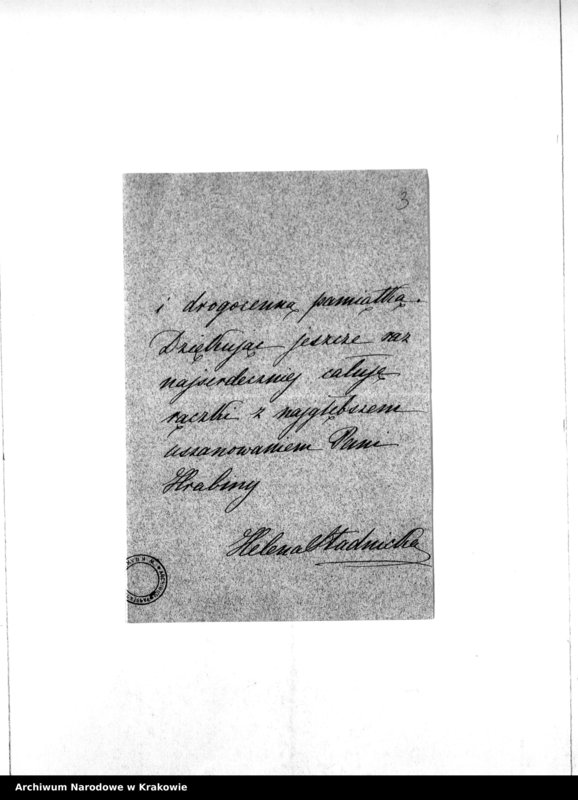 3
i drogocenną pamiątką.
Dziękując jeszcze raz
najserdeczniej całuję
rączki z najgłębszem
uszanowaniem Pani
Hrabiny
Helena Stadnicka
Archiwum Narodowe w Krakowie